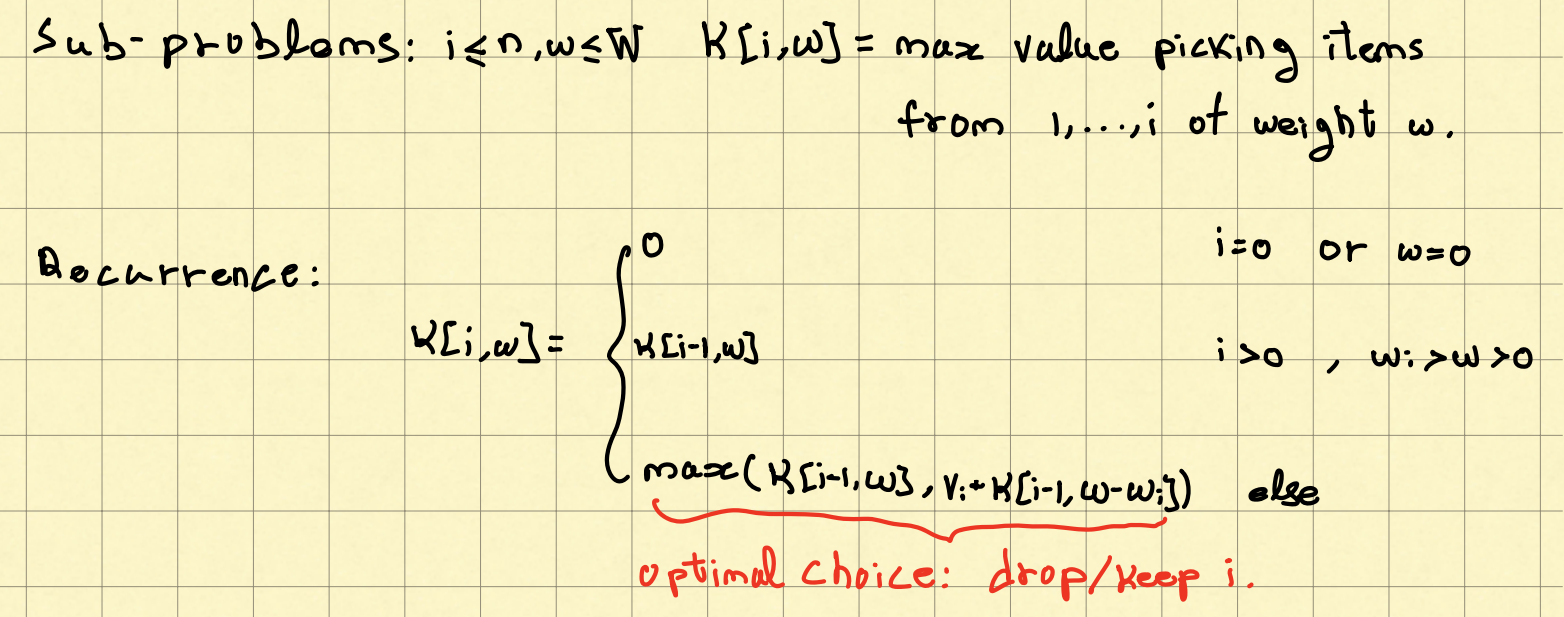 Sub-problems: i≤n, w≤W K[i,w] = max value picking items
from 1,...,i of weight w.
0 i=0 or w=0
Recurrence:
K[i,w] = K[i-1,w] i>0 , wi>w>0
max(K[i-1,w], vi+K[i-1,w-wi]) else
optimal choice: drop/keep i.